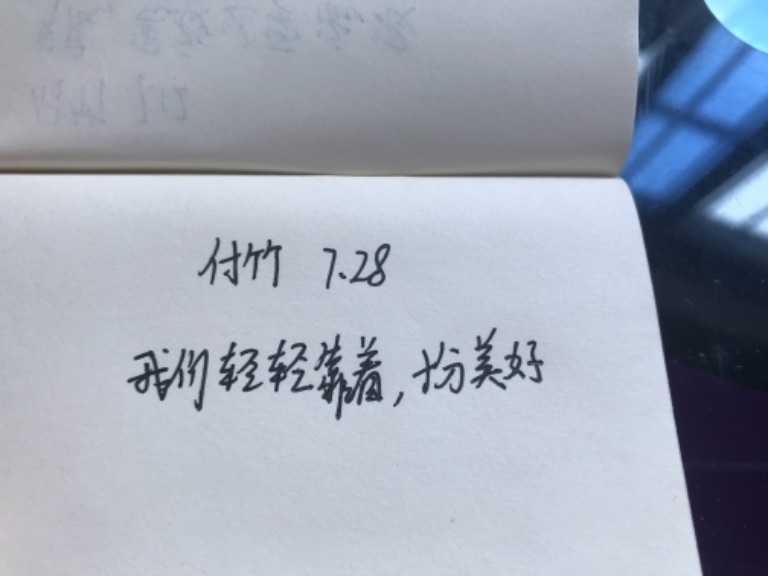 付竹 7.28
我们轻轻靠着,扮美好